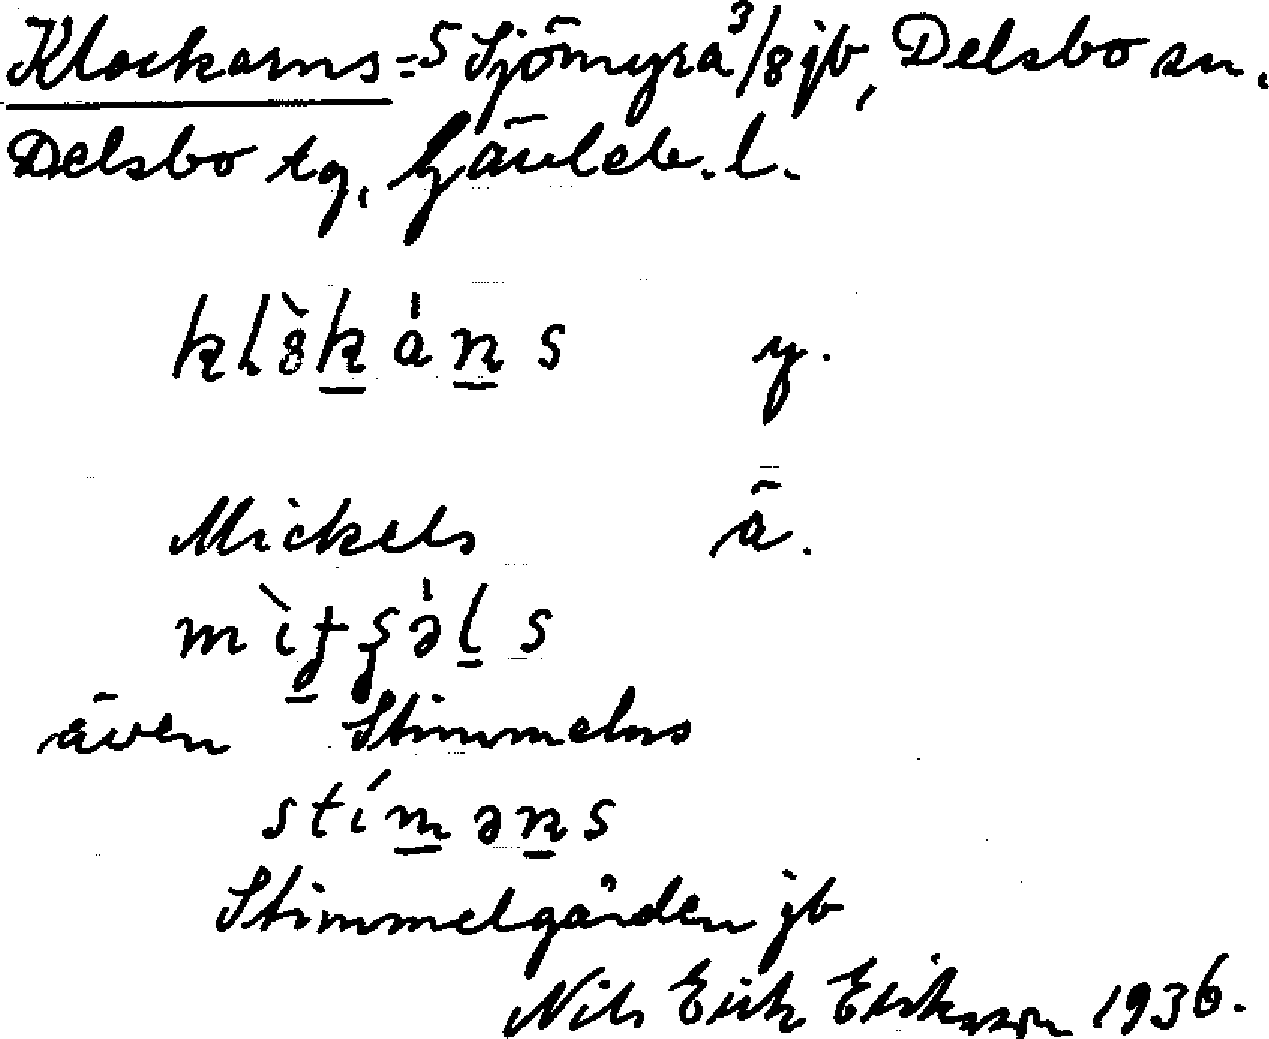 Klockarns = 5 Sjömyra 3/8 jb, Delsbo sn.
Delsbo tg. Gävleb. l.
kl8̀k̲án̲s y.
Mickels ä.
även Stimmelns
stím̲ən̲s
Stimmelgården jb
Nils Erik Eriksson 1936.